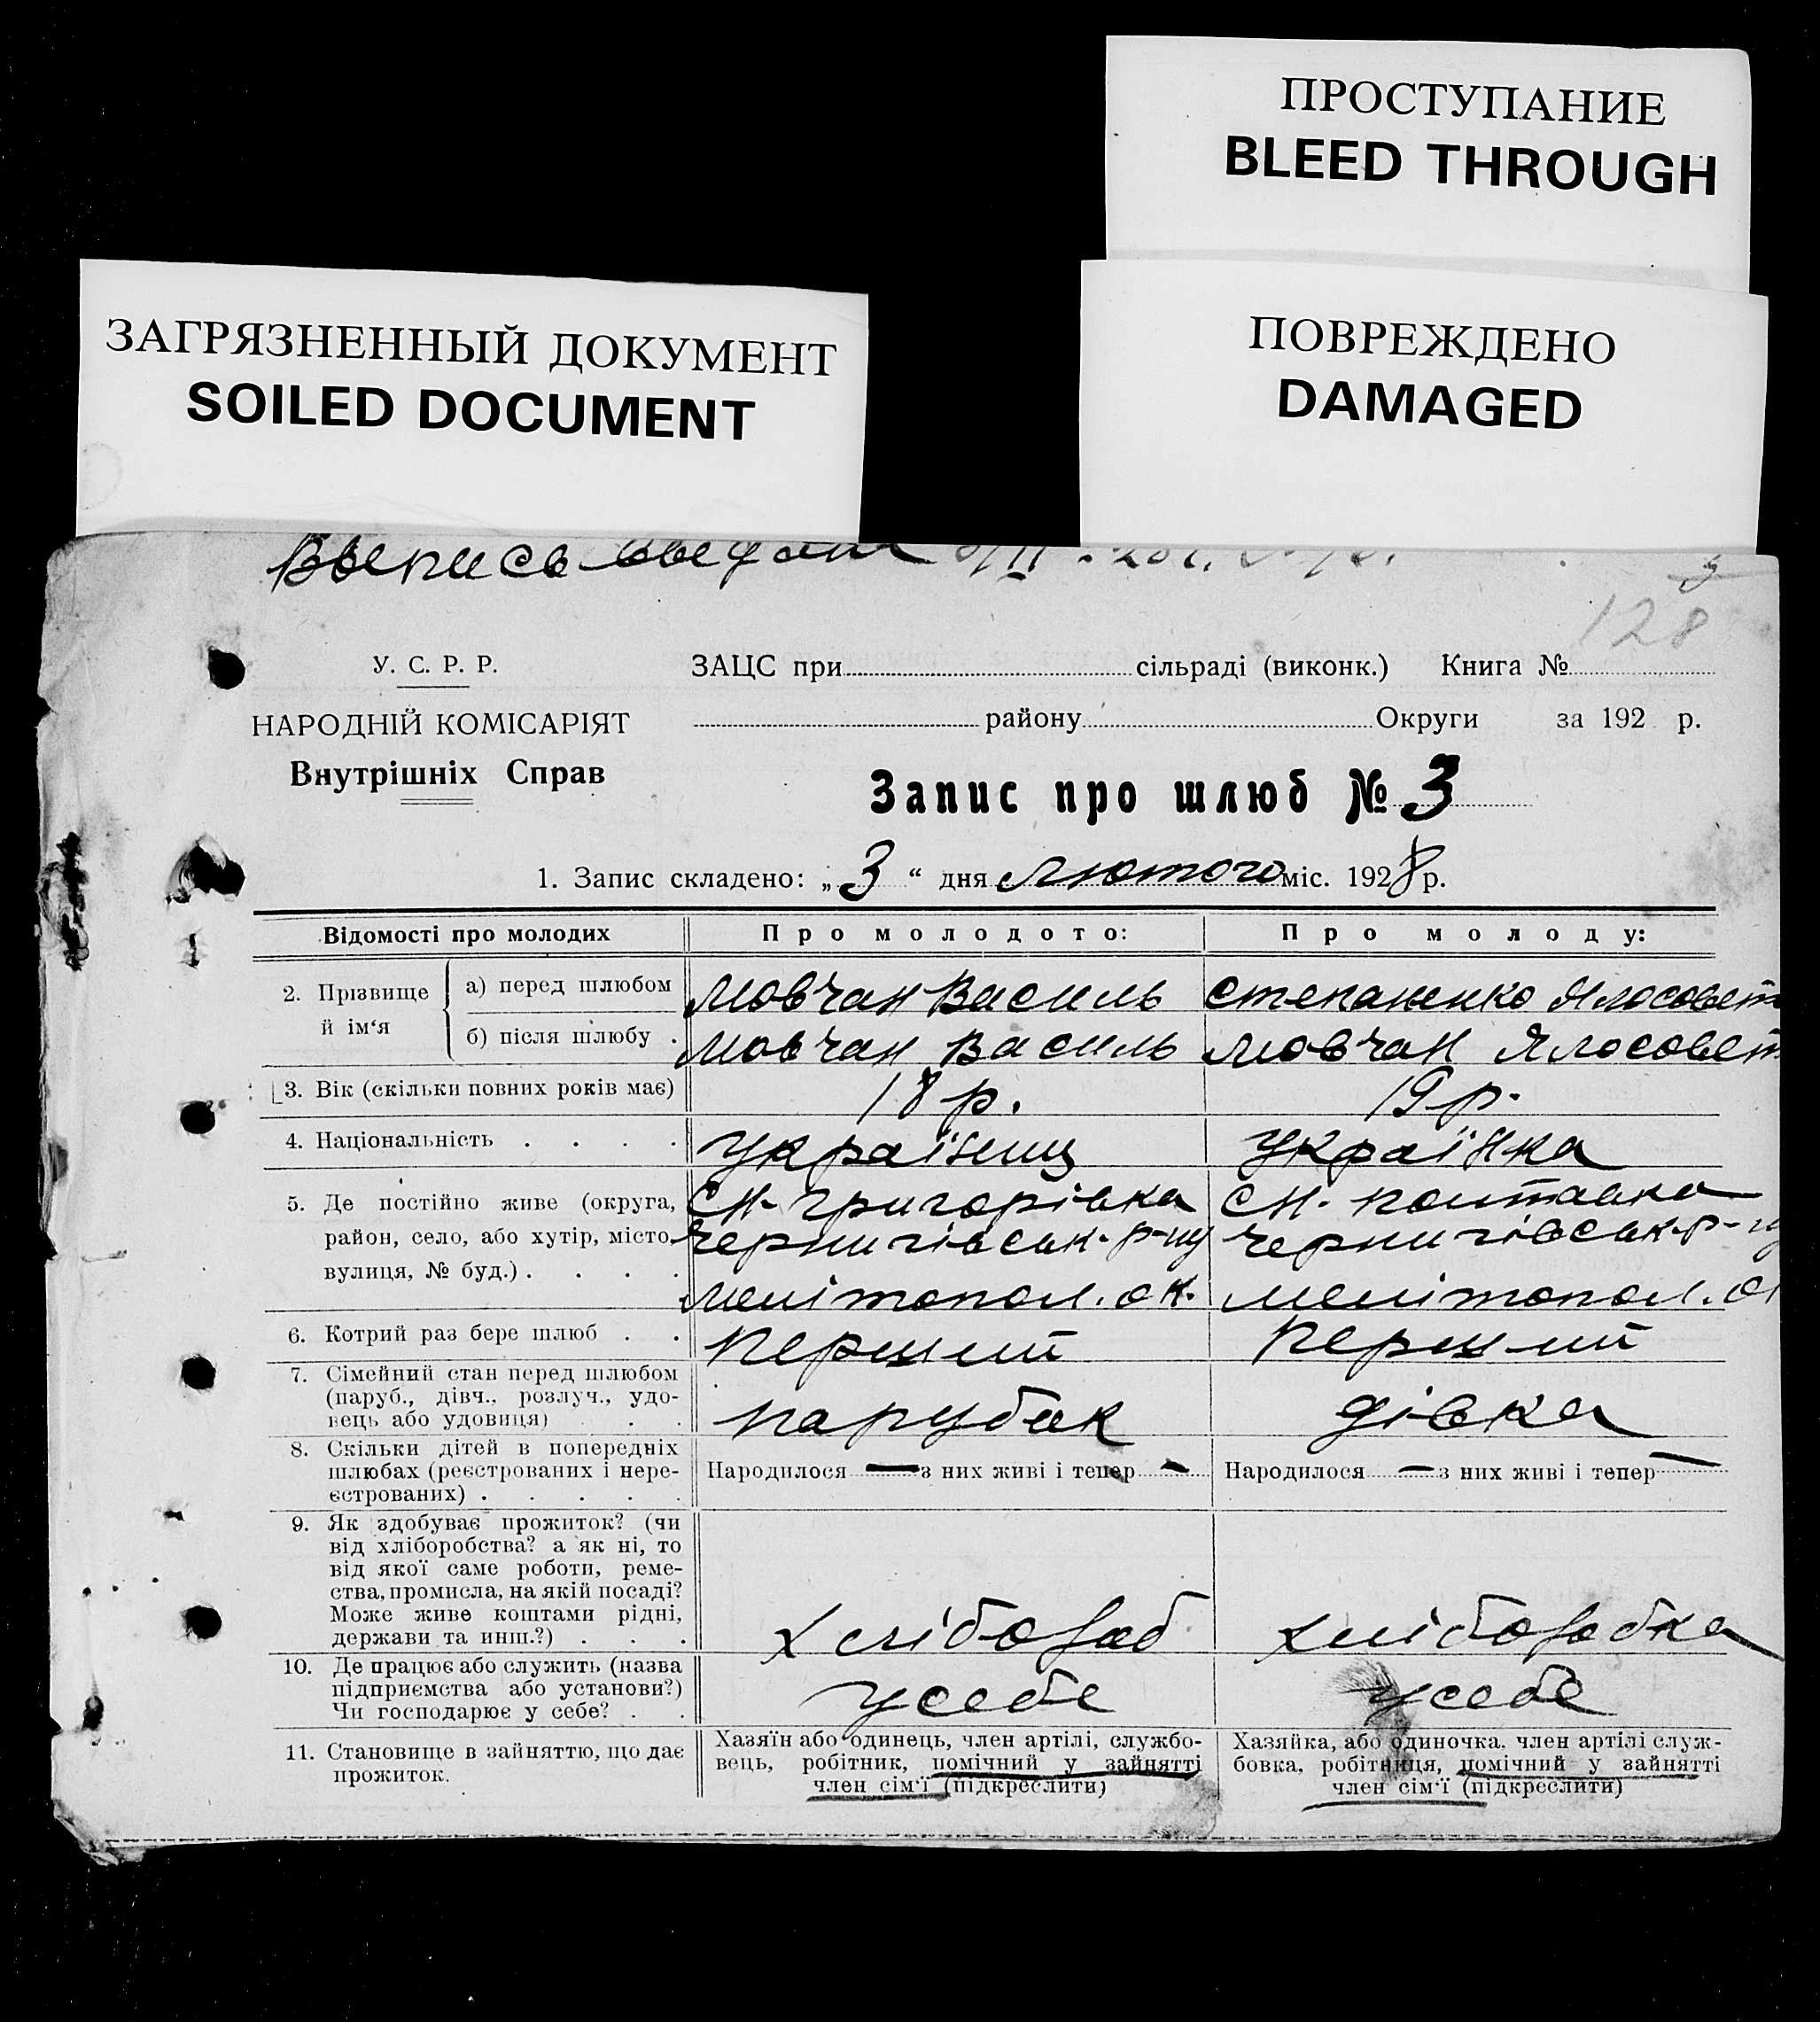 ПРОСТУПАНИЕ
BLEED THROUGH
ЗАГРЯЗНЕННЫЙ ДОКУМЕНТ
SOILED DOCUMENT
ПОВРЕЖДЕНО
DAMAGED
Выпись выдана
3
128
У. С. Р. Р.
ЗАЦС при сільраді (виконк.) Книга №
НАРОДНІЙ КОМІСАРІЯТ
району Округи за 192 р.
Внутрішніх Справ
Запис про шлюб № 3
1. Запис складено: „ 3 “ дня лютого міс. 1928 р.
Відомості про молодих
Про молодого:
Про молоду:
2. Прізвище й ім‘я
а) перед шлюбом Мовчан Василь Степаненко
б) після шлюбу . Мовчан Василь Мовчан
3. Вік (скільки повних років має) 18 р. 19 р.
4. Національність . . . . Українець Українка
5. Де постійно живе (округа, район, село, або хутір, місто, вулиця, № буд.) . . . .
см. Григорівка
Чернигівськ. р-ну
Мелітопол. ок.
см. Полтавка
Чернигівськ. р-ну
Мелітопол. ок
6. Котрий раз бере шлюб . . Перший Перший
7. Сімейний стан перед шлюбом
(паруб., дівч., розлуч., удо-
вець або удовиця) . . парубак дівка
8. Скільки дітей в попередніх
шлюбах (реєстрованих і нере-
єстрованих) . . . . .
Народилося — з них живі і тепер —
Народилося — з них живі і тепер —
9. Як здобуває прожиток? (чи
від хліборобства? а як ні, то
від якої саме роботи, реме-
ства, промисла, на якій посаді?
Може живе коштами рідні,
держави та инш.?) . . .
хлібороб
хліборобка
10. Де працює або служить (назва
підприємства або установи?)
Чи господарює у себе? . .
у себе
у себе
11. Становище в зайняттю, що дає
прожиток.
Хазяїн або одинець, член артілі, службо-
вець, робітник, помічний у зайнятті
член сім‘ї (підкреслити)
Хазяйка, або одиночка. член артілі служ-
бовка, робітниця, помічний у зайнятті
член сім‘ї (підкреслити)